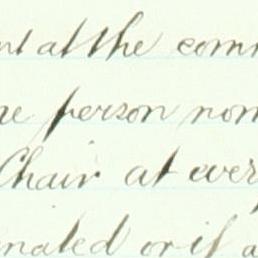 at the com
person nom
Chair at ever
nated or if a